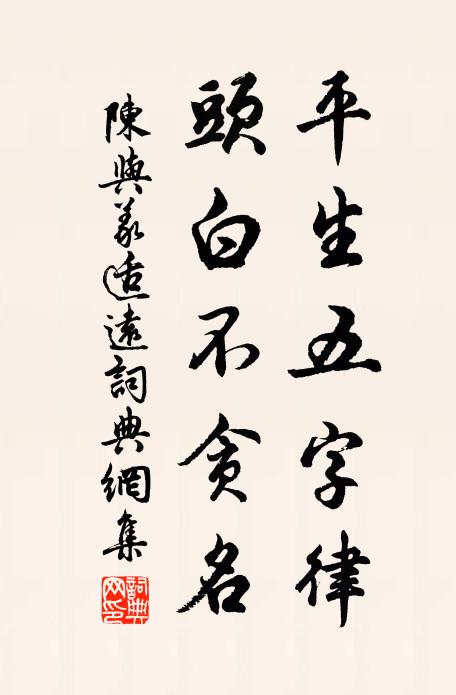 平生五字律
頭白不貪名
陳與義適遠詞典網集
詞典网印